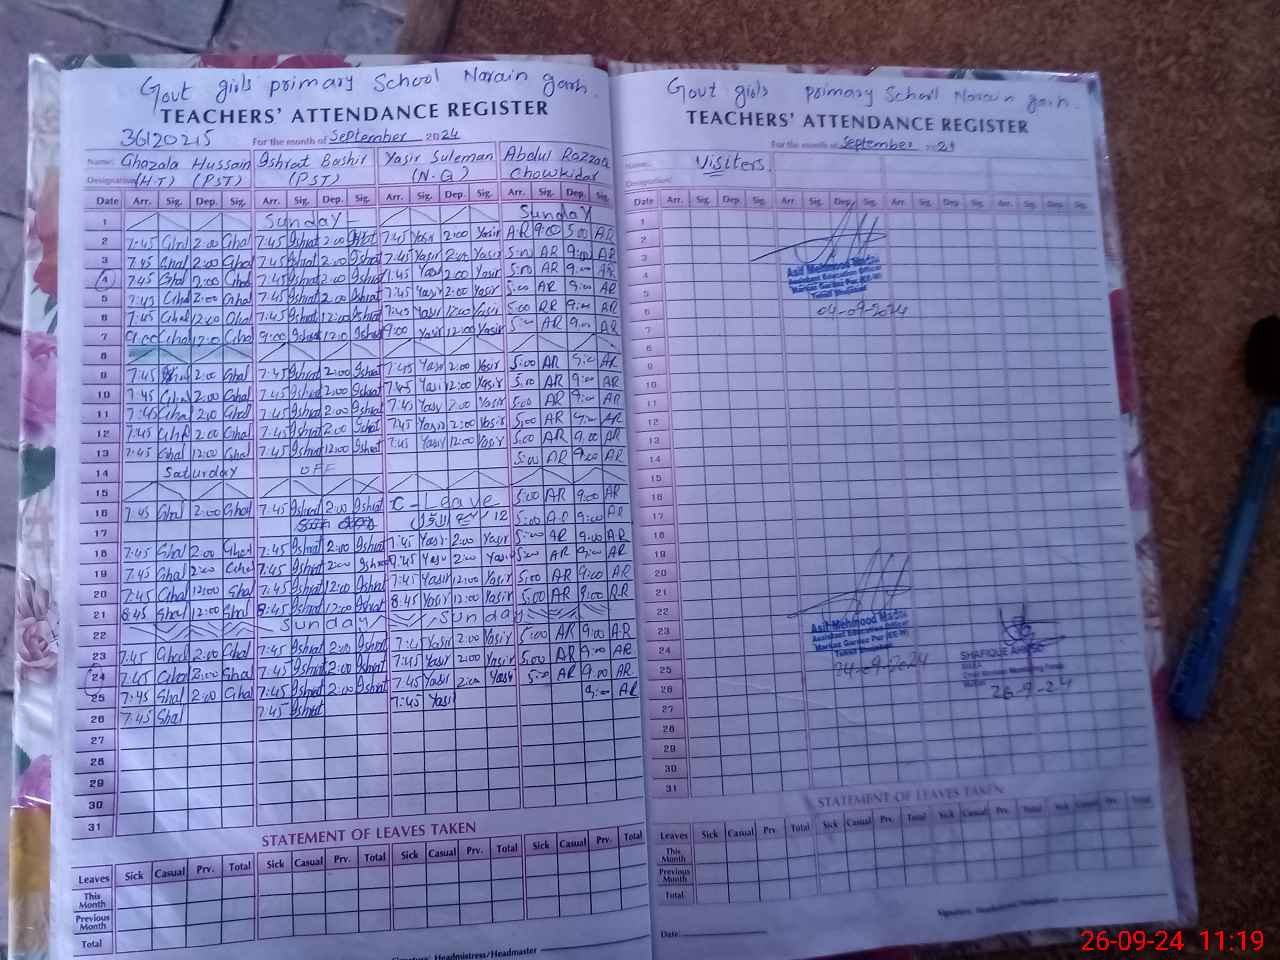 Govt girls primary School Narain garh.
TEACHERS' ATTENDANCE REGISTER
36120215 For the month of September 2024
Name: Ghazala Hussain Ishrat Bashir Yasir Suleman Abdul Razzaq
Designation (H.T) (PST) (PST) (N.Q) Chowkidar
Date Arr. Sig. Dep. Sig. Arr. Sig. Dep. Sig. Arr. Sig. Dep. Sig. Arr. Sig. Dep. Sig.
1 Sunday Sunday
2 7:45 Ghal 2:00 Ghal 7:45 Ishrat 2:00 Ishrat 7:45 Yasir 2:00 Yasir AR 9:00 5:00 AR
3 7:45 Ghal 2:00 Ghal 7:45 Ishrat 2:00 Ishrat 7:45 Yasir 2:00 Yasir 5:00 AR 9:00 AR
4 7:45 Ghal 2:00 Ghal 7:45 Ishrat 2:00 Ishrat 7:45 Yasir 2:00 Yasir 5:00 AR 9:00 AR
5 7:45 Ghal 2:00 Ghal 7:45 Ishrat 2:00 Ishrat 7:45 Yasir 2:00 Yasir 5:00 AR 9:00 AR
6 7:45 Ghal 12:00 Ghal 7:45 Ishrat 12:00 Ishrat 7:45 Yasir 12:00 Yasir 5:00 AR 9:00 AR
7 9:00 Ghal 12:00 Ghal 9:00 Ishrat 12:00 Ishrat 9:00 Yasir 12:00 Yasir 5:00 AR 9:00 AR
8
9 7:45 2:00 Ghal 7:45 Ishrat 2:00 Ishrat 7:45 Yasir 2:00 Yasir 5:00 AR 9:00 AR
10 7:45 Ghal 2:00 Ghal 7:45 Ishrat 2:00 Ishrat 7:45 Yasir 2:00 Yasir 5:00 AR 9:00 AR
11 7:45 Ghal 2:00 Ghal 7:45 Ishrat 2:00 Ishrat 7:45 Yasir 2:00 Yasir 5:00 AR 9:00 AR
12 7:45 Ghal 2:00 Ghal 7:45 Ishrat 2:00 Ishrat 7:45 Yasir 2:00 Yasir 5:00 AR 9:00 AR
13 7:45 Ghal 12:00 Ghal 7:45 Ishrat 12:00 Ishrat 7:45 Yasir 12:00 Yasir 5:00 AR 9:00 AR
14 Saturday OFF 5:00 AR 9:00 AR
15
16 7:45 Ghal 2:00 Ghal 7:45 Ishrat 2:00 Ishrat C-Leave 5:00 AR 9:00 AR
17 12 5:00 AR 9:00 AR
18 7:45 Ghal 2:00 Ghal 7:45 Ishrat 2:00 Ishrat 7:45 Yasir 2:00 Yasir 5:00 AR 9:00 AR
19 7:45 Ghal 2:00 Ghal 7:45 Ishrat 2:00 Ishrat 7:45 Yasir 2:00 Yasir 5:00 AR 9:00 AR
20 7:45 Ghal 12:00 Ghal 7:45 Ishrat 12:00 Ishrat 7:45 Yasir 12:00 Yasir 5:00 AR 9:00 AR
21 8:45 Ghal 12:00 Ghal 8:45 Ishrat 12:00 Ishrat 8:45 Yasir 12:00 Yasir 5:00 AR 9:00 AR
22 Sunday Sunday
23 7:45 Ghal 2:00 Ghal 7:45 Ishrat 2:00 Ishrat 7:45 Yasir 2:00 Yasir 5:00 AR 9:00 AR
24 7:45 Ghal 2:00 Ghal 7:45 Ishrat 2:00 Ishrat 7:45 Yasir 2:00 Yasir 5:00 AR 9:00 AR
25 7:45 Ghal 2:00 Ghal 7:45 Ishrat 2:00 Ishrat 7:45 Yasir 2:00 Yasir 5:00 AR 9:00 AR
26 7:45 Ghal 7:45 Ishrat 7:45 Yasir 9:00 AR
27
28
29
30
31
STATEMENT OF LEAVES TAKEN
Leaves Sick Casual Prv. Total Sick Casual Prv. Total Sick Casual Prv. Total Sick Casual Prv. Total
This Month
Previous Month
Total
Signature: Headmistress/Headmaster
Govt girls primary School Narain garh.
TEACHERS' ATTENDANCE REGISTER
For the month of September 2024
Name: Visiters
Designation
Date Arr. Sig. Dep. Sig. Arr. Sig. Dep. Sig. Arr. Sig. Dep. Sig. Arr. Sig. Dep. Sig.
1
2
3
4 Asif Mehmood
Assistant Education Officer
5
6 04-09-2024
7
8
9
10
11
12
13
14
15
16
17
18
19
20
21
22
23 Asif Mehmood
Assistant Education Officer
24 SHAFIQUE
25 04-09-2024
26 26-9-24
27
28
29
30
31
STATEMENT OF LEAVES TAKEN
Leaves Sick Casual Prv. Total Sick Casual Prv. Total Sick Casual Prv. Total Sick Casual Prv. Total
This Month
Previous Month
Total
Signature: Headmistress/Headmaster
Date:
26-09-24 11:19